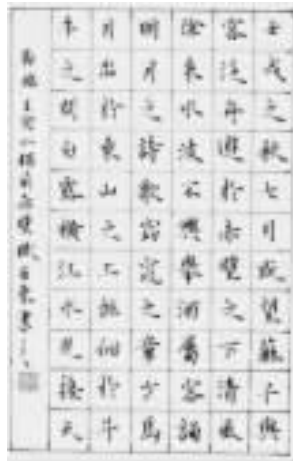 壬戌之秋七月既望蘇子與
客泛舟遊於赤壁之下清風
徐來水波不興舉酒屬客誦
明月之詩歌窈窕之章少焉
月出於東山之上徘徊於斗
牛之間白露橫江水光接天
前赤壁賦